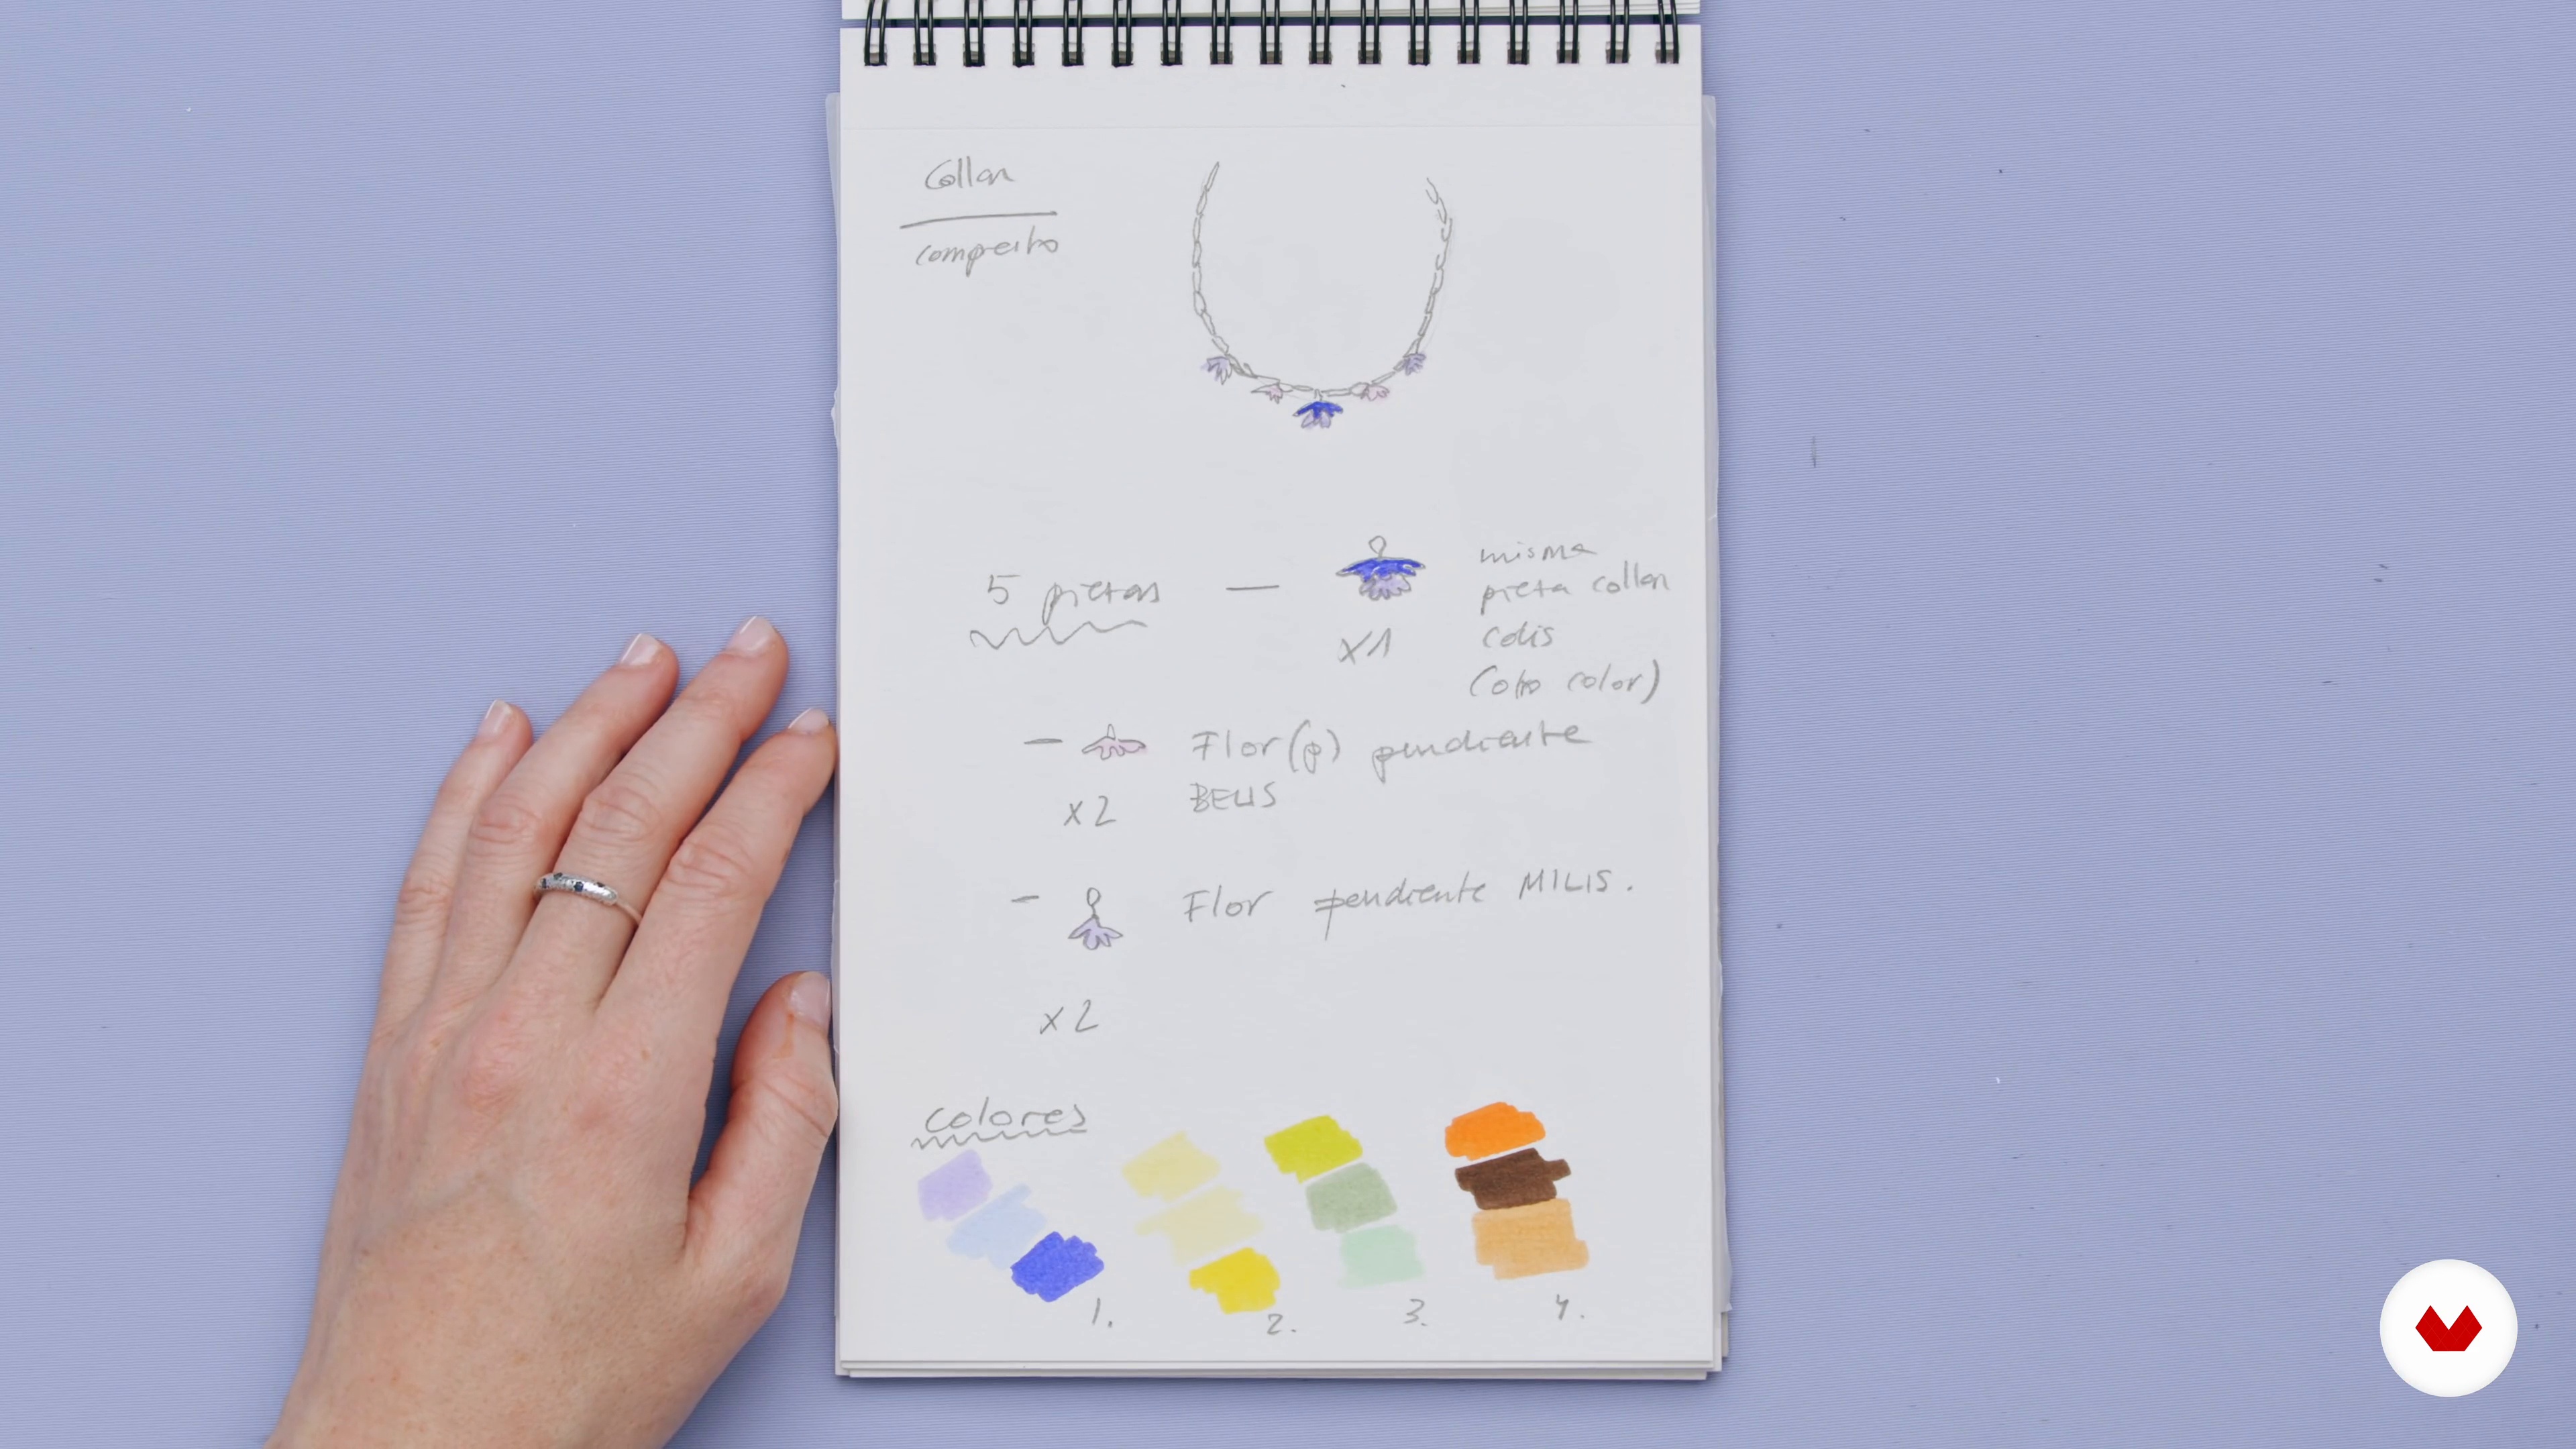 Collar
compuesto
5 piezas —
x1
misma
pieza collar
colis
(otro color)
— Flor(p) pendiente
BELIS
x2
— Flor pendiente MILIS.
x2
colores
1.
2.
3.
4.